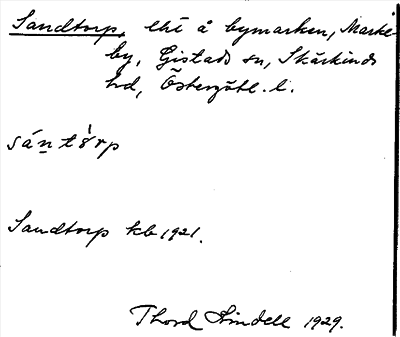 Sandtorp, lht å bymarken, Marke-
by, Gistads sn, Skärkinds
hd, Östergötl. l.
sán tò̀rp
Sandtorp kb 1921.
Thord Lindell 1929.